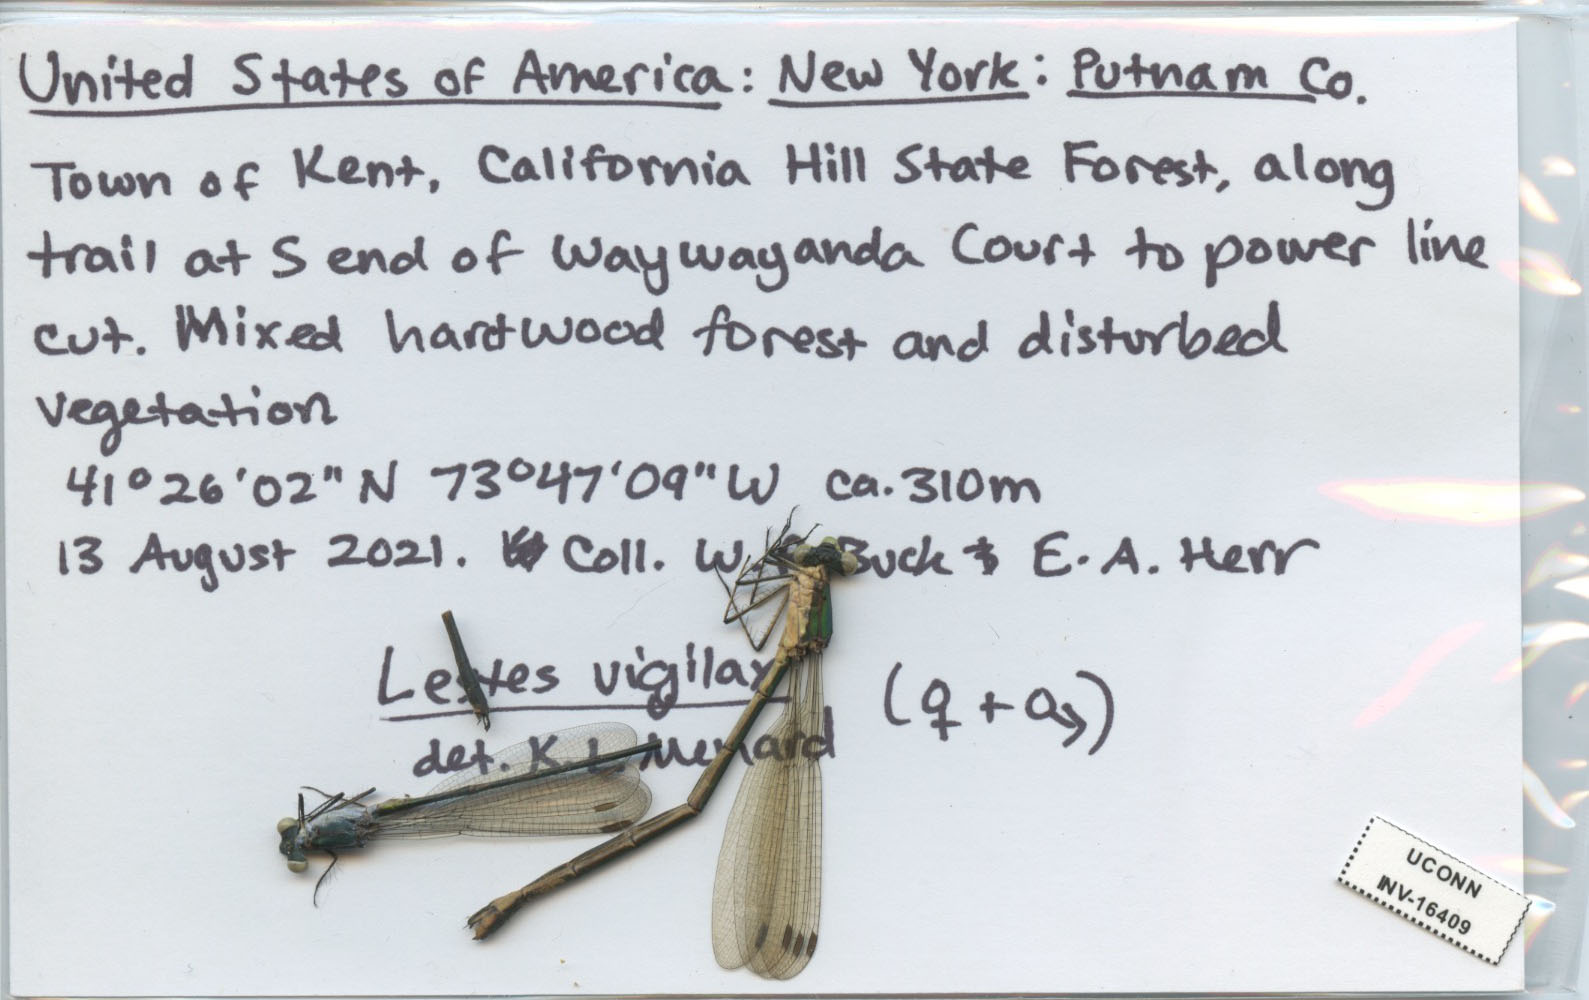 United States of America: New York: Putnam Co.
Town of Kent, California Hill State Forest, along
trail at S end of Waywayanda Court to power line
cut. Mixed hardwood forest and disturbed
vegetation
41°26'02"N 73°47'09"W ca. 310m
13 August 2021. Coll. W. Buck & E. A. Herr
Lestes vigilax (♀ + ♂)
det. K. L. Menard
UCONN
INV-16409